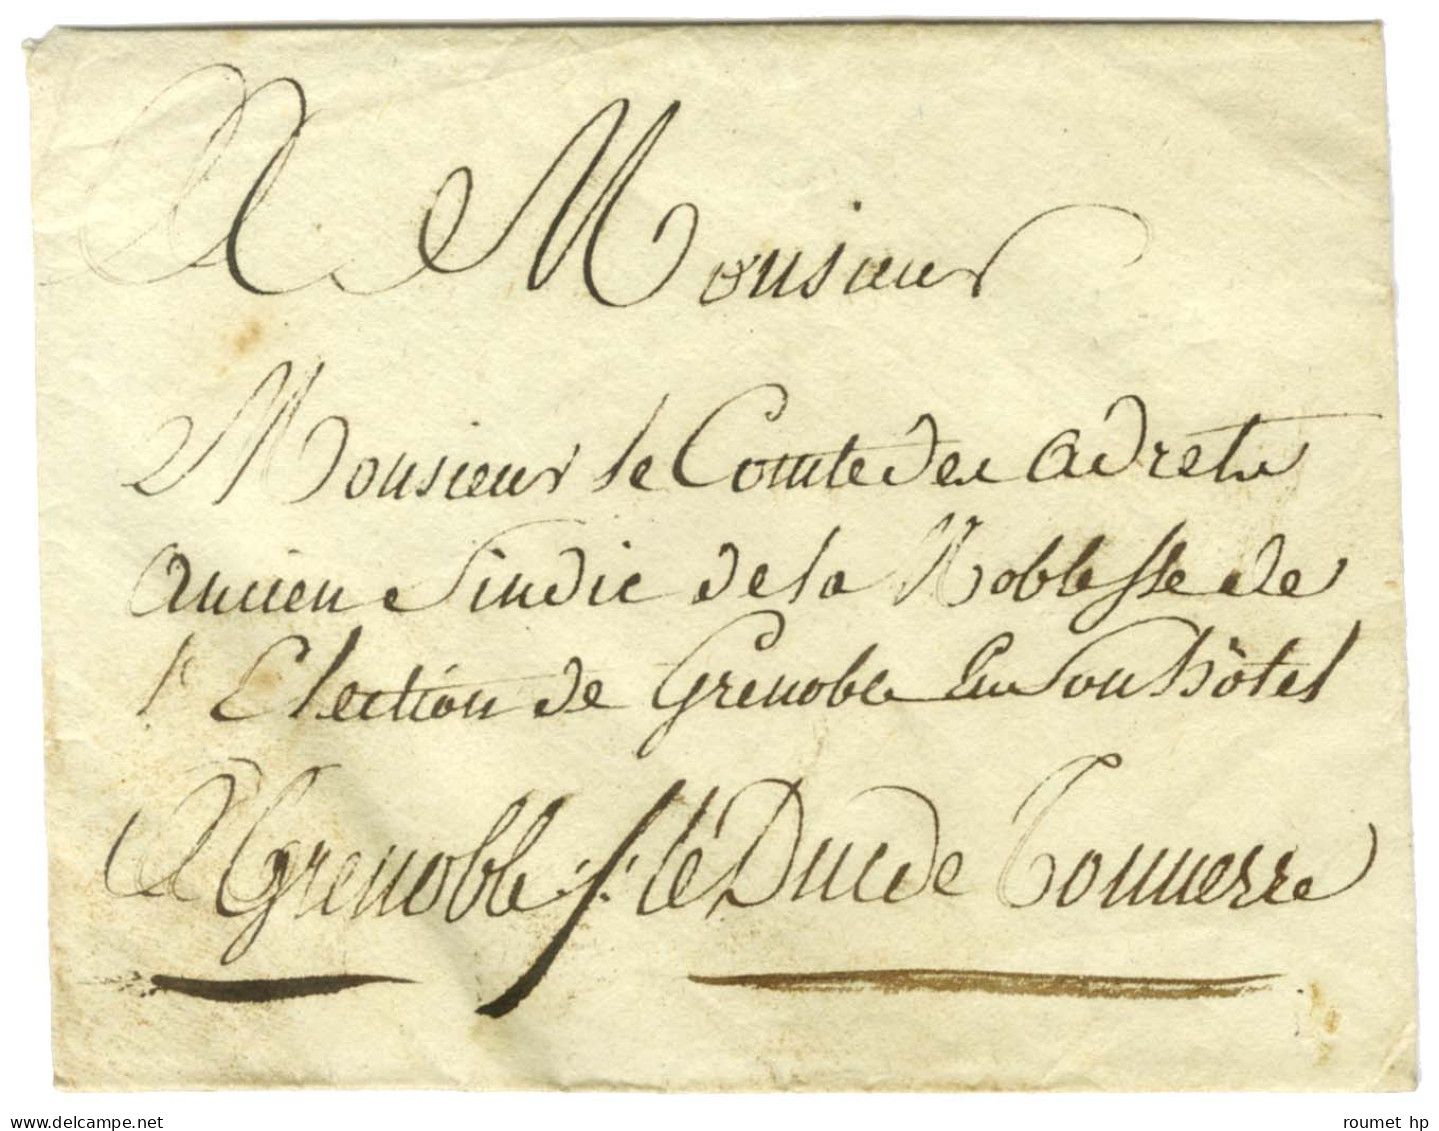 A Monsieur
Monsieur le Comte des adrets
ancien Sindic de la Noblesse de
l'Election de Grenoble En Son hôtel
A Grenoble ./. le Duc de Tonnerre
www.delcampe.net
roumet hp